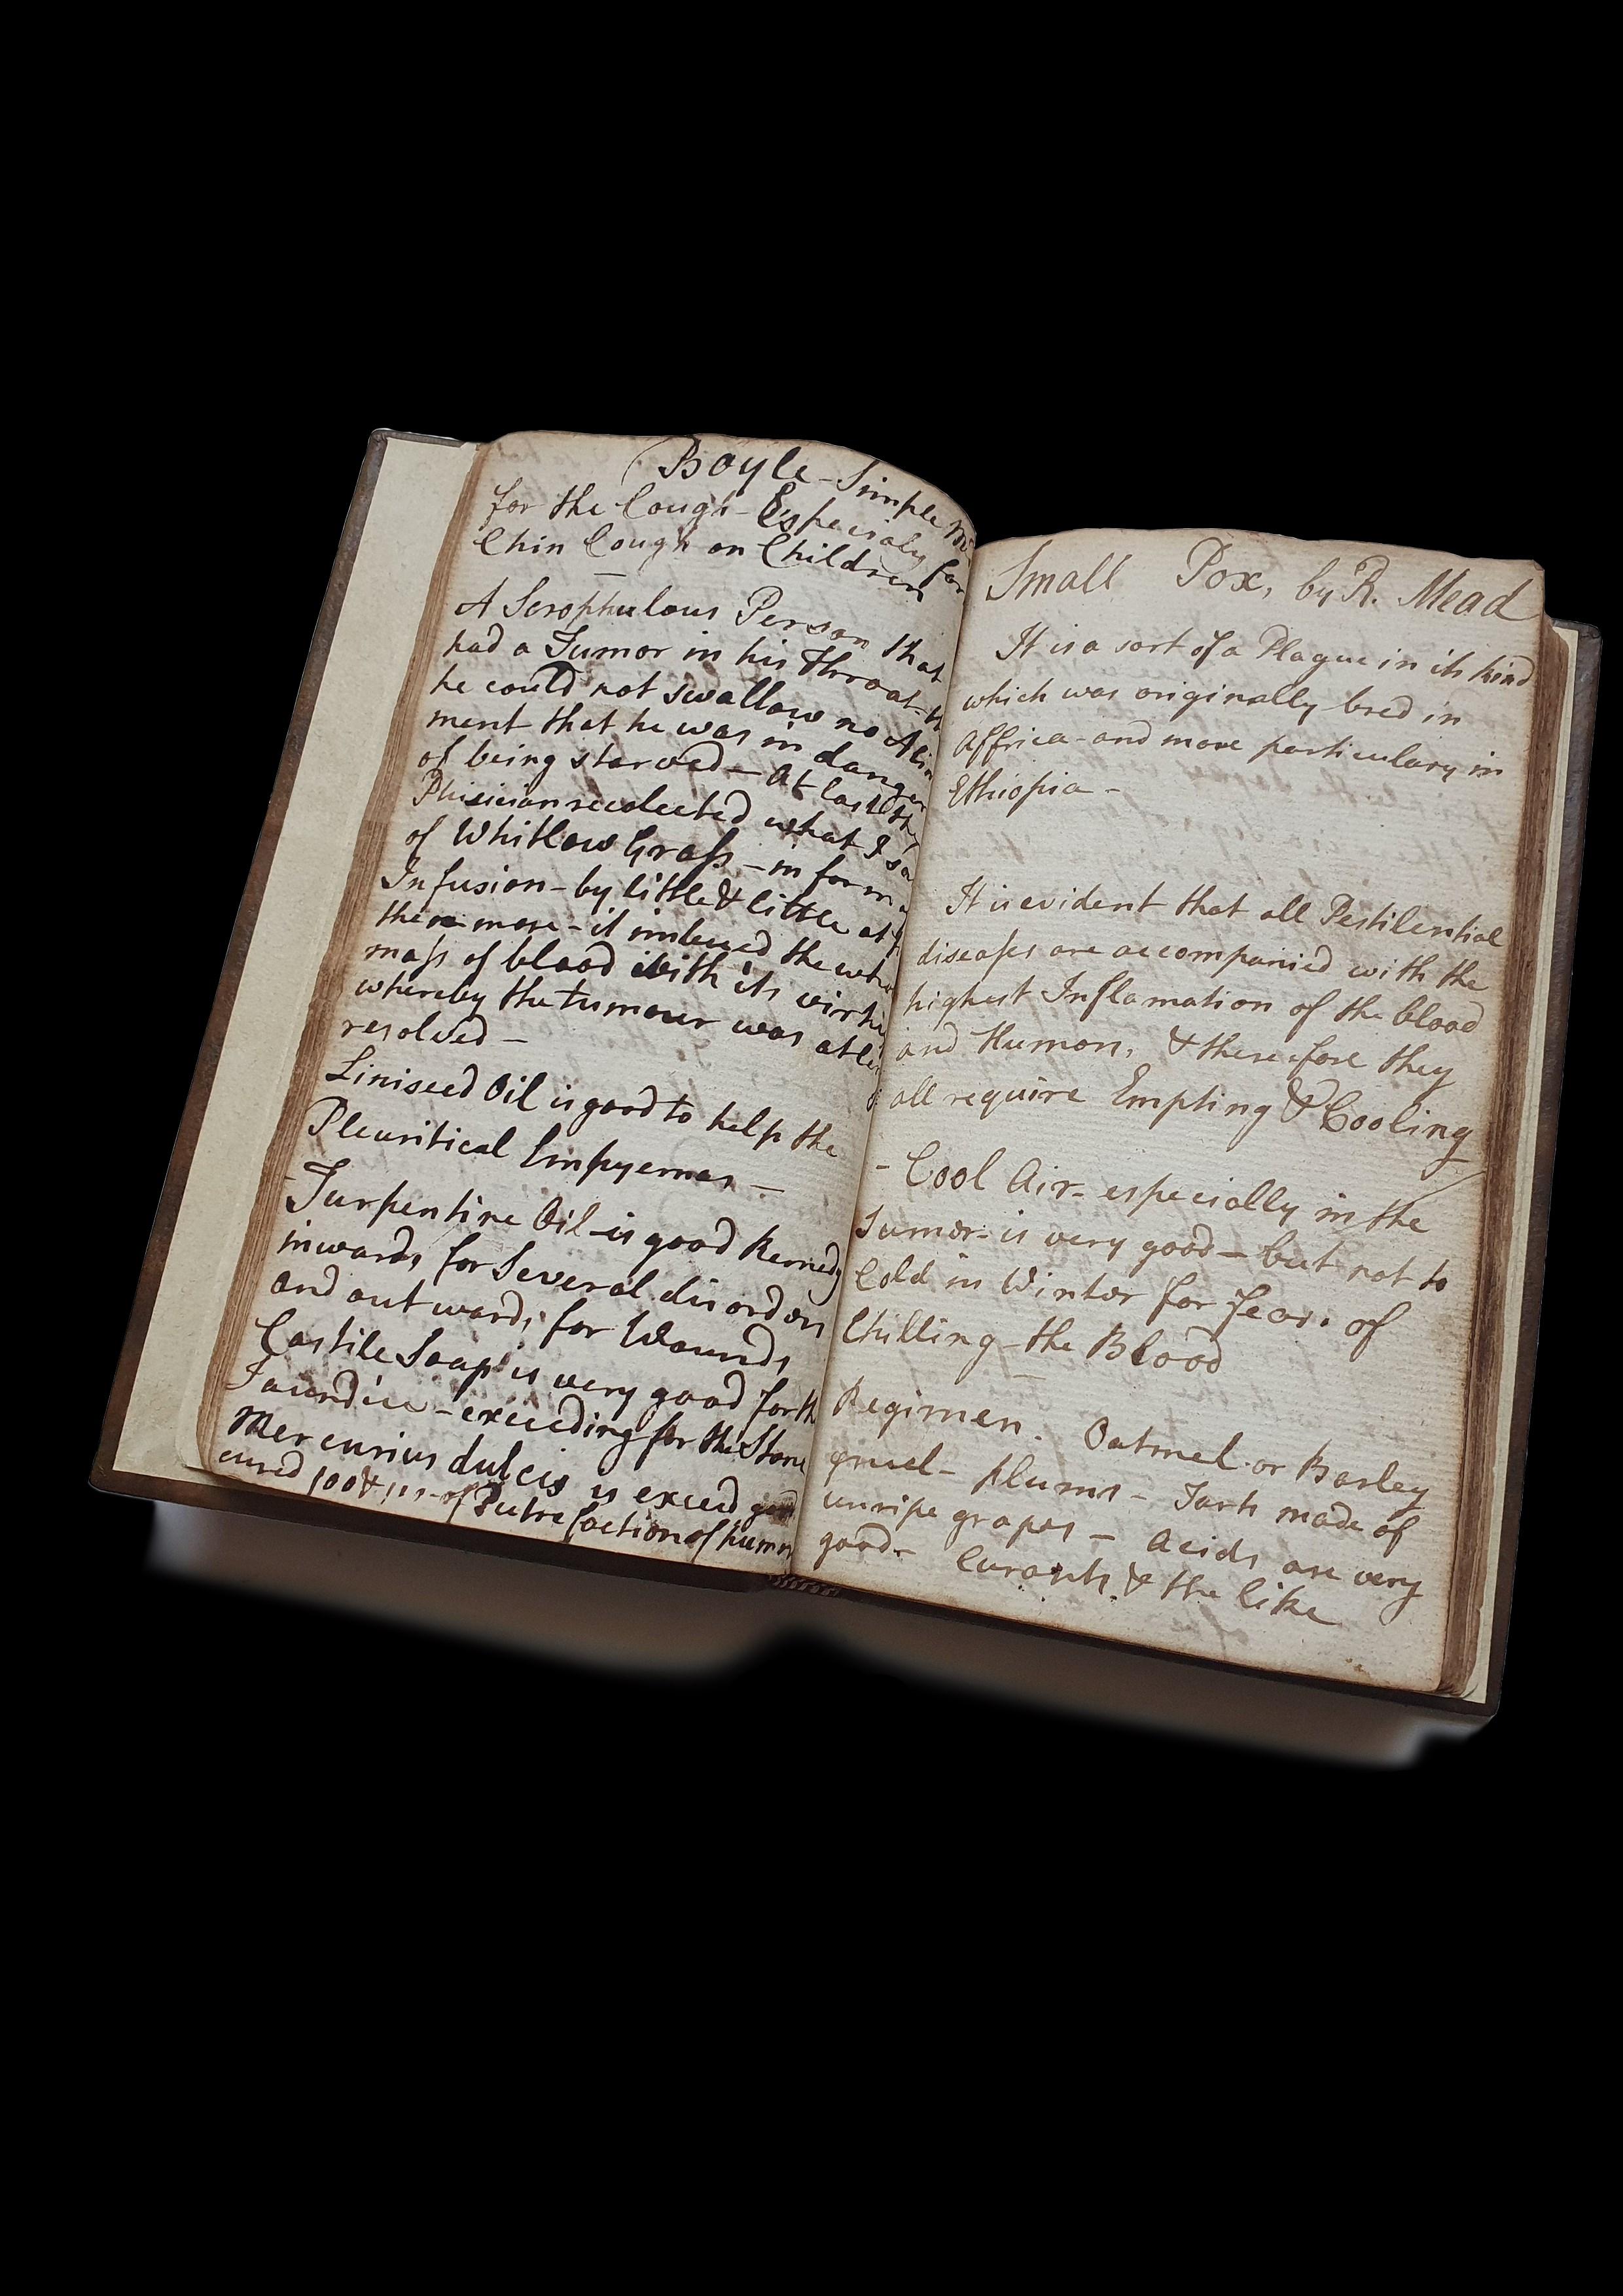 Boyle - Simple
for the Cough - Especialy for
Chin Cough on Children
A Scrophulous Person that
had a Tumor in his Throat
he could not swallow no Alim
ment that he was in danger
of being starved - At last the
Phisician recolected what I sa
of Whitlow Graſs - in form
Infusion - by little & little at
there more - it imbued the who
maſs of blood with its virtu
whereby the tumour was at
resolved -
Liniseed Oil is good to help the
Pleuritical Empyemas -
- Turpentine Oil - is good Remedy
inwards for Several disorders
and outwards for Wounds
Castile Soap is very good for th
Jaundice - exceeding for the Stone
Mercurius dulcis is exceed good
cured 100 & of Putrefaction of humo
Small Pox, by R. Mead
It is a sort of a Plague in its kind
which was originally bred in
Affrica - and more particulary in
Ethiopia -
It is evident that all Pestilential
diseaſes are accompanied with the
highest Inflamation of the blood
and Humors, & therefore they
all require Empting & Cooling
- Cool Air - especially in the
Tumor - is very good - but not to
Cold in Winter for fear of
Chilling the Blood
Regimen. Oatmel or Barley
gruel - plums - Tarts made of
unripe grapes - Acids are very
good - Curants & the like